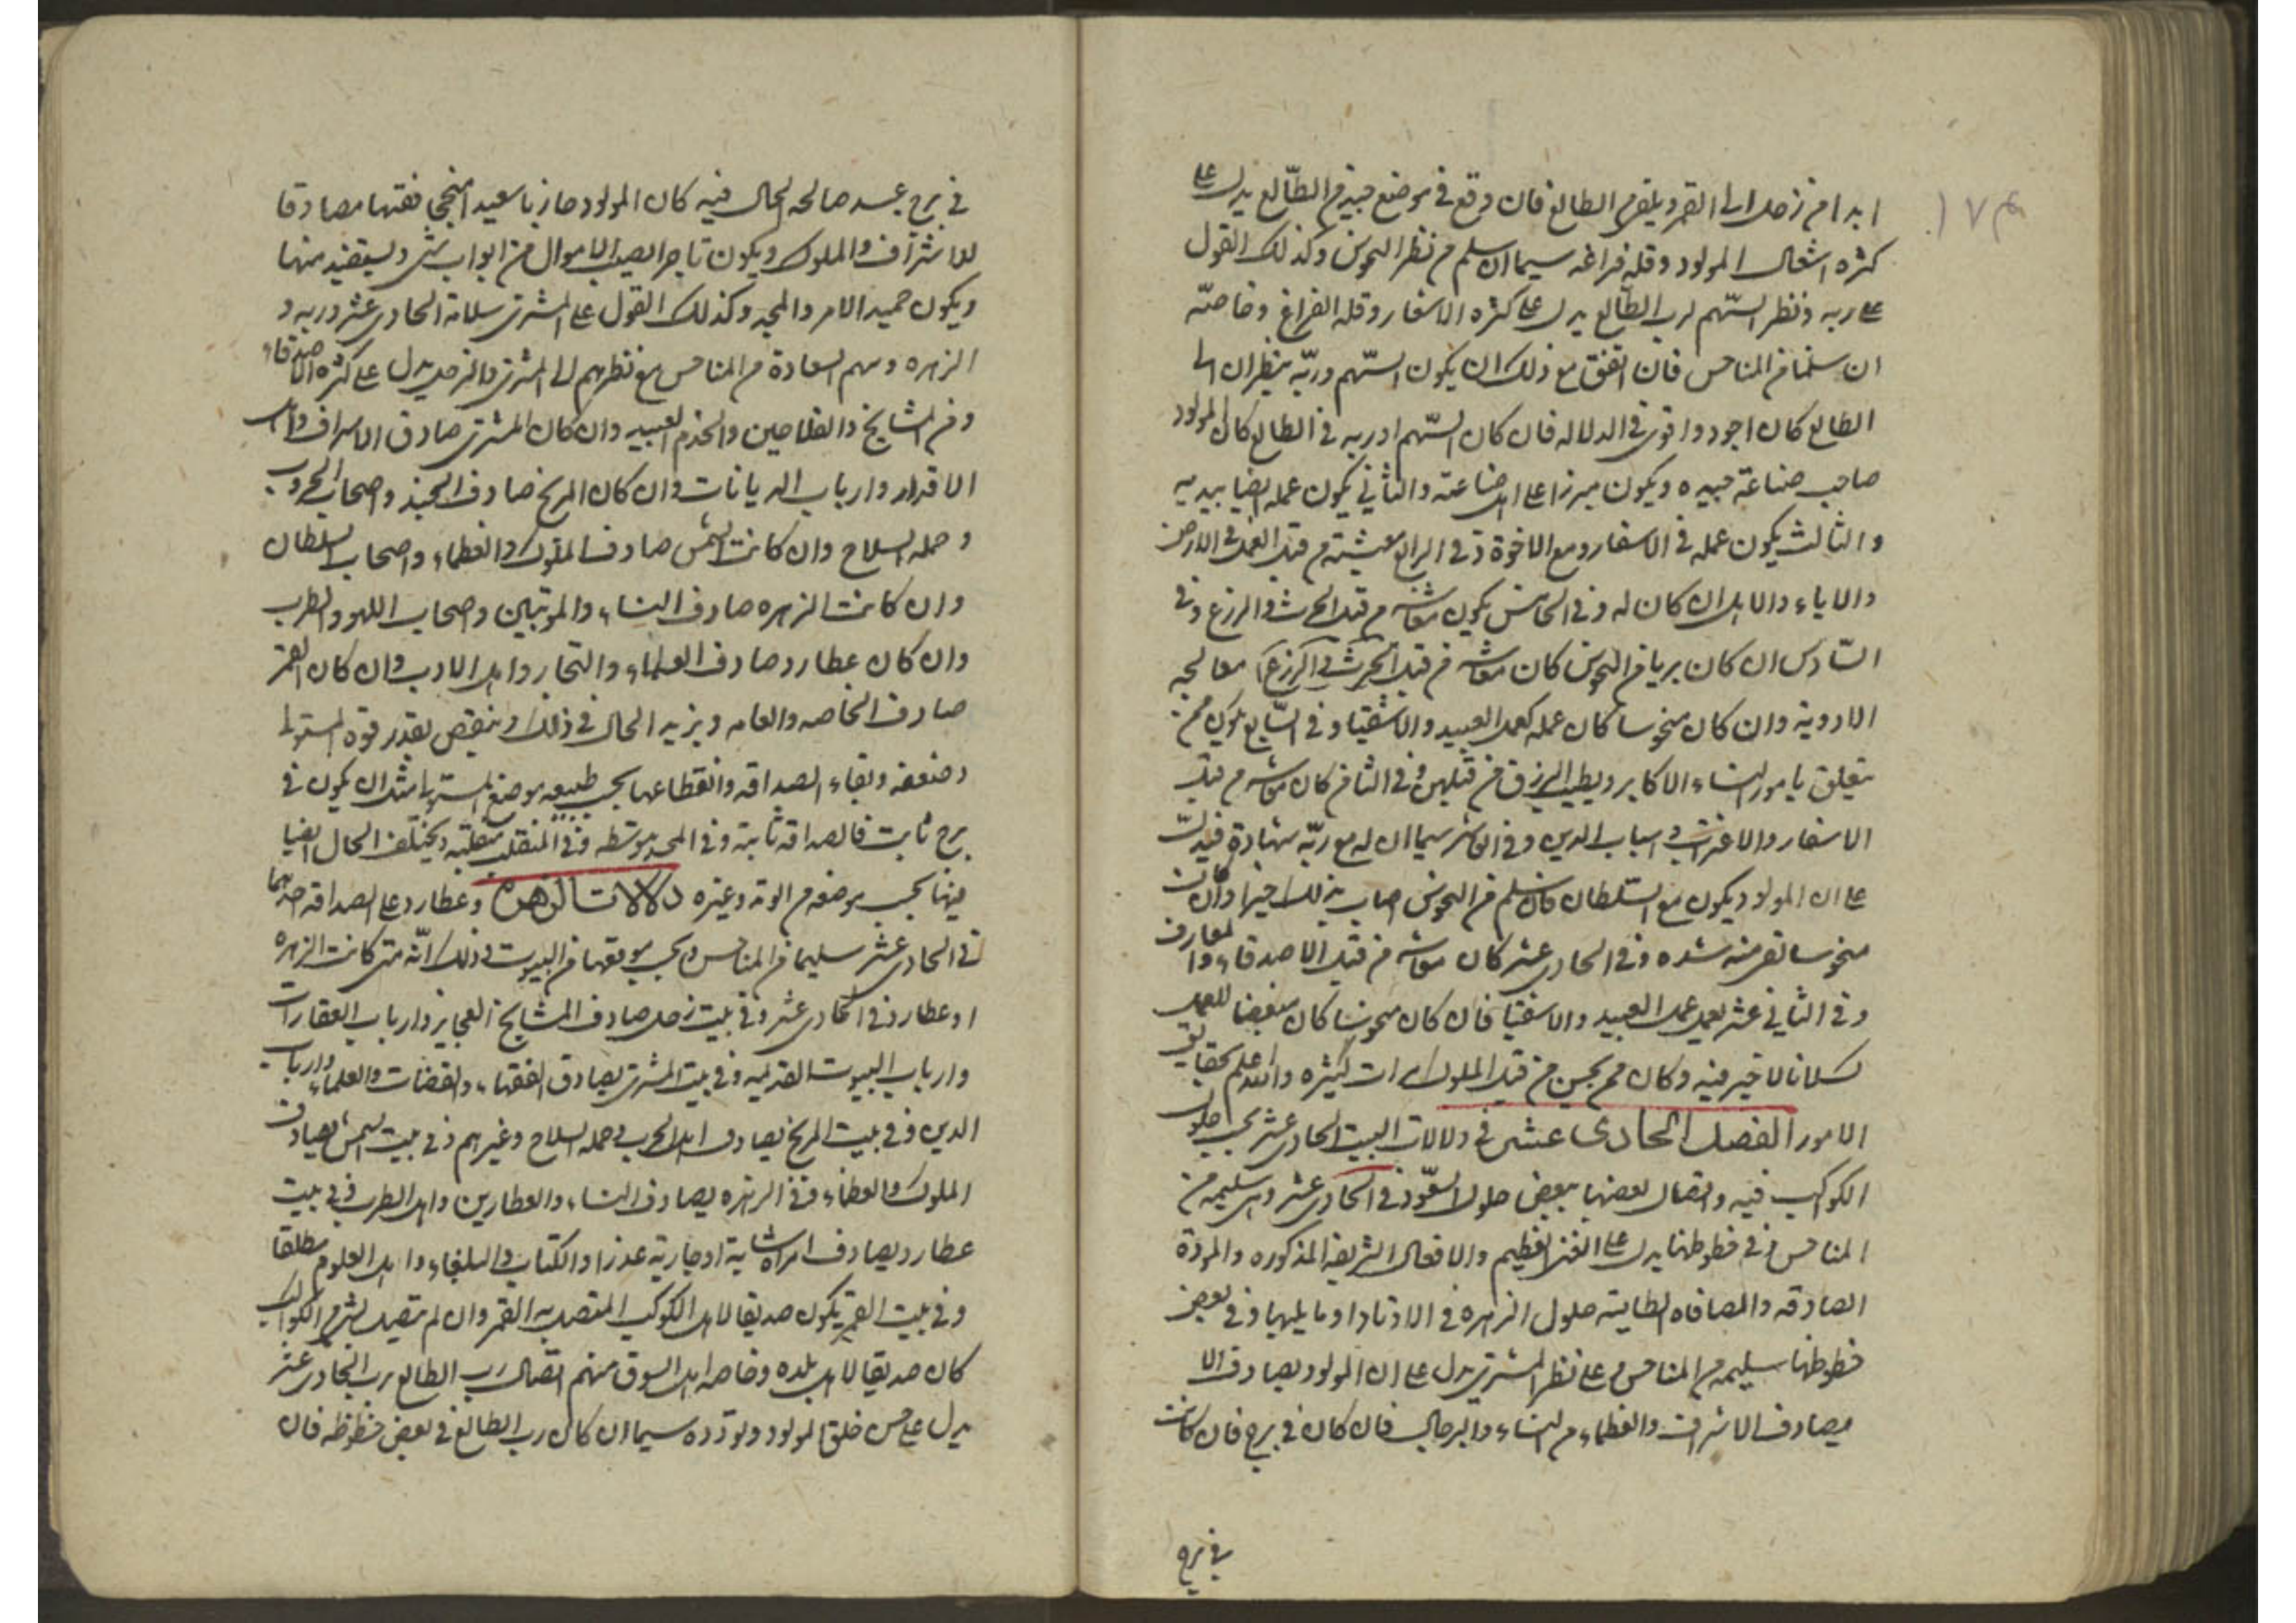 ١٧٣
ابدا من زحل الى القمر ويلقى من الطالع فان وقع في موضع جيد من الطالع يدل على
كثره اشغال المولود وقله فراغه سيما ان سلم من نظر النحوس وكذلك القول
على ربه ونظر السهم لرب الطالع يدل على كثره الاسفار وقله الفراغ وخاصة
ان سلما من المناحس فان اتفق مع ذلك ان يكون السهم وربه ينظران الى
الطالع كان اجود واقوى في الدلاله فان كان السهم او ربه في الطالع كان المولود
صاحب صناعة جيده ويكون مبرزا على اهل صناعته والثاني يكون عمله ايضا بيديه
والثالث يكون عمله في الاسفار ومع الاخوة وفي الرابع معيشته من قبل العمل في الارض
والاباء والاهل ان كان له وفي الخامس يكون معاشه من قبل الحرث والزرع وفي
السادس ان كان بريا من النحوس كان معاشه من قبل الحرث والزرع معالجه
الادوية وان كان منحوسا كان عمله كعمل العبيد والاشقيا وفي السابع يكون ممن
يتعلق بامور النساء الاكابر ويطيب الرزق من قبلهن وفي الثامن كان معاشه من قبل
الاسفار والاغتراب واسباب الدين وفي العاشر سيما ان له مع ربه شهادة فيدل
على ان المولود يكون مع السلطان فان سلم من النحوس اصاب بذلك خيرا وان كان
منحوسا تعرض منه شده وفي الحادى عشر كان معاشه من قبل الاصدقاء والمعارف
وفي الثاني عشر يعمل عمل العبيد والاشقيا فان كان منحوسا كان مبغضا للعمل
كسلانا لا خير فيه وكان ممن يحبس من قبل الملوك مرات كثيره والله اعلم بحقايق
الامور الفصل الحادى عشر في دلالات البيت الحادى عشر بحسب حلول
الكواكب فيه واتصال بعضها ببعض حلول السعود في الحادى عشر وهى سليمه من
المناحس وفي حظوظها يدل على الغنى العظيم والافعال الشريفه المذكوره والمودة
الصادقه والمصافاه الطايبه حلول الزهره في الاوتاد او ما يليها وفي بعض
حظوظها سليمه من المناحس وعلى نظر المشترى يدل على ان المولود يصادق الا
يصادق الاشراف والعظماء من النساء والرجال فان كان في برج فان كانت
في برج
في برج جسد صالحه الحال فيه كان المولود حازما سعيدا منجحا فقيها مصادقا
للاشراف والملوك ويكون تاجرا يصيب الاموال من ابواب شتى ويستفيد منها
ويكون حميد الامر والمجد وكذلك القول على المشترى سلامة الحادى عشر وربه و
الزهره وسهم السعادة من المناحس مع نظرهم الى المشترى والزحل يدل على كثره الاصدقاء
ومن المشايخ والفلاحين والخدم العبيد وان كان المشترى صادق الاشراف واهل
الاقدار وارباب الديانات وان كان المريخ صادف الجند واصحاب الحروب
وحمله السلاح وان كانت الشمس صادف الملوك والعظماء واصحاب السلطان
وان كانت الزهره صادف النساء والمونثين واصحاب اللهو والطرب
وان كان عطارد صادف العلماء والتجار واهل الادب وان كان القمر
صادف الخاصه والعامه ويزيد الحال في ذلك وينقص بقدر قوه المستولى
وضعفه وبقاء الصداقه وانقطاعها بحسب طبيعه موضع المستولى مثل ان يكون في
برج ثابت فالصداقه ثابته وفي المجسد متوسطه وفي المنقلب منقلبه ويختلف الحال ايضا
فيها بحسب موضعه من الوتد وغيره دلالات الزهره وعطارد على الصداقه احدهما
في الحادى عشر سليما من المناحس وبحسب موقعها من البيوت في ذلك انه متى كانت الزهره
او عطارد في الحادى عشر وفي بيت زحل صادف المشايخ العجايز وارباب العقارات
وارباب البيوت القديمه وفي بيت المشترى يصادق الفقهاء والقضات والعلماء وارباب
الدين وفي بيت المريخ يصادف اهل الحرب وحمله السلاح وغيرهم وفي بيت الشمس يصادف
الملوك والعظماء وفي الزهره يصادف النساء والعطارين واهل الطرب وفي بيت
عطارد يصادف امراة شابة او جارية عذرا والكتاب والبلغاء واهل العلوم مطلقا
وفي بيت القمر يكون صديقا لاهل الكوكب المتصل به القمر وان لم يتصل بشى من الكواكب
كان صديقا لاهل بلده وخاصه اهل السوق منهم اتصال رب الطالع برب الحادى عشر
يدل على حسن خلق المولود وتودده سيما ان كان رب الطالع في بعض حظوظه فان